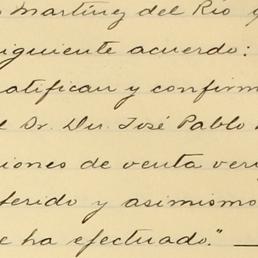 Martínez del Río y
siguiente acuerdo:
ratifican y confirm
Dr. Dn. José Pablo
iones de venta veri
ferido y asimismo
e ha efectuado."